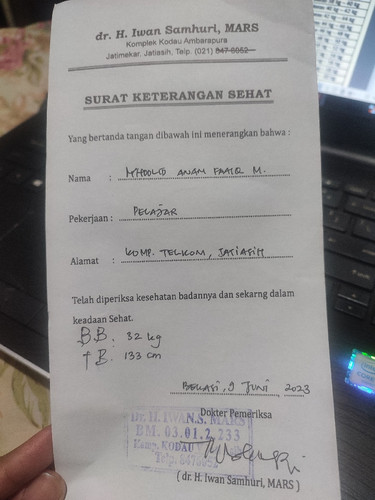 dr. H. Iwan Samhuri, MARS
Komplek Kodau Ambarapura
Jatimekar, Jatiasih, Telp. (021) 847 6052
SURAT KETERANGAN SEHAT
Yang bertanda tangan dibawah ini menerangkan bahwa :
Nama : ANAM FAAIQ M.
Pekerjaan : PELAJAR
Alamat : KOMP. TELKOM, JATIASIH
Telah diperiksa kesehatan badannya dan sekarng dalam
keadaan Sehat.
B.B. : 32 kg
T B. : 133 cm
BEKASI, 9 JUNI 2023
Dokter Pemeriksa
Dr. H. IWAN.S. MARS
BM. 03.01.2.233
Komp. KODAU
Telp.
( dr. H. Iwan Samhuri, MARS )